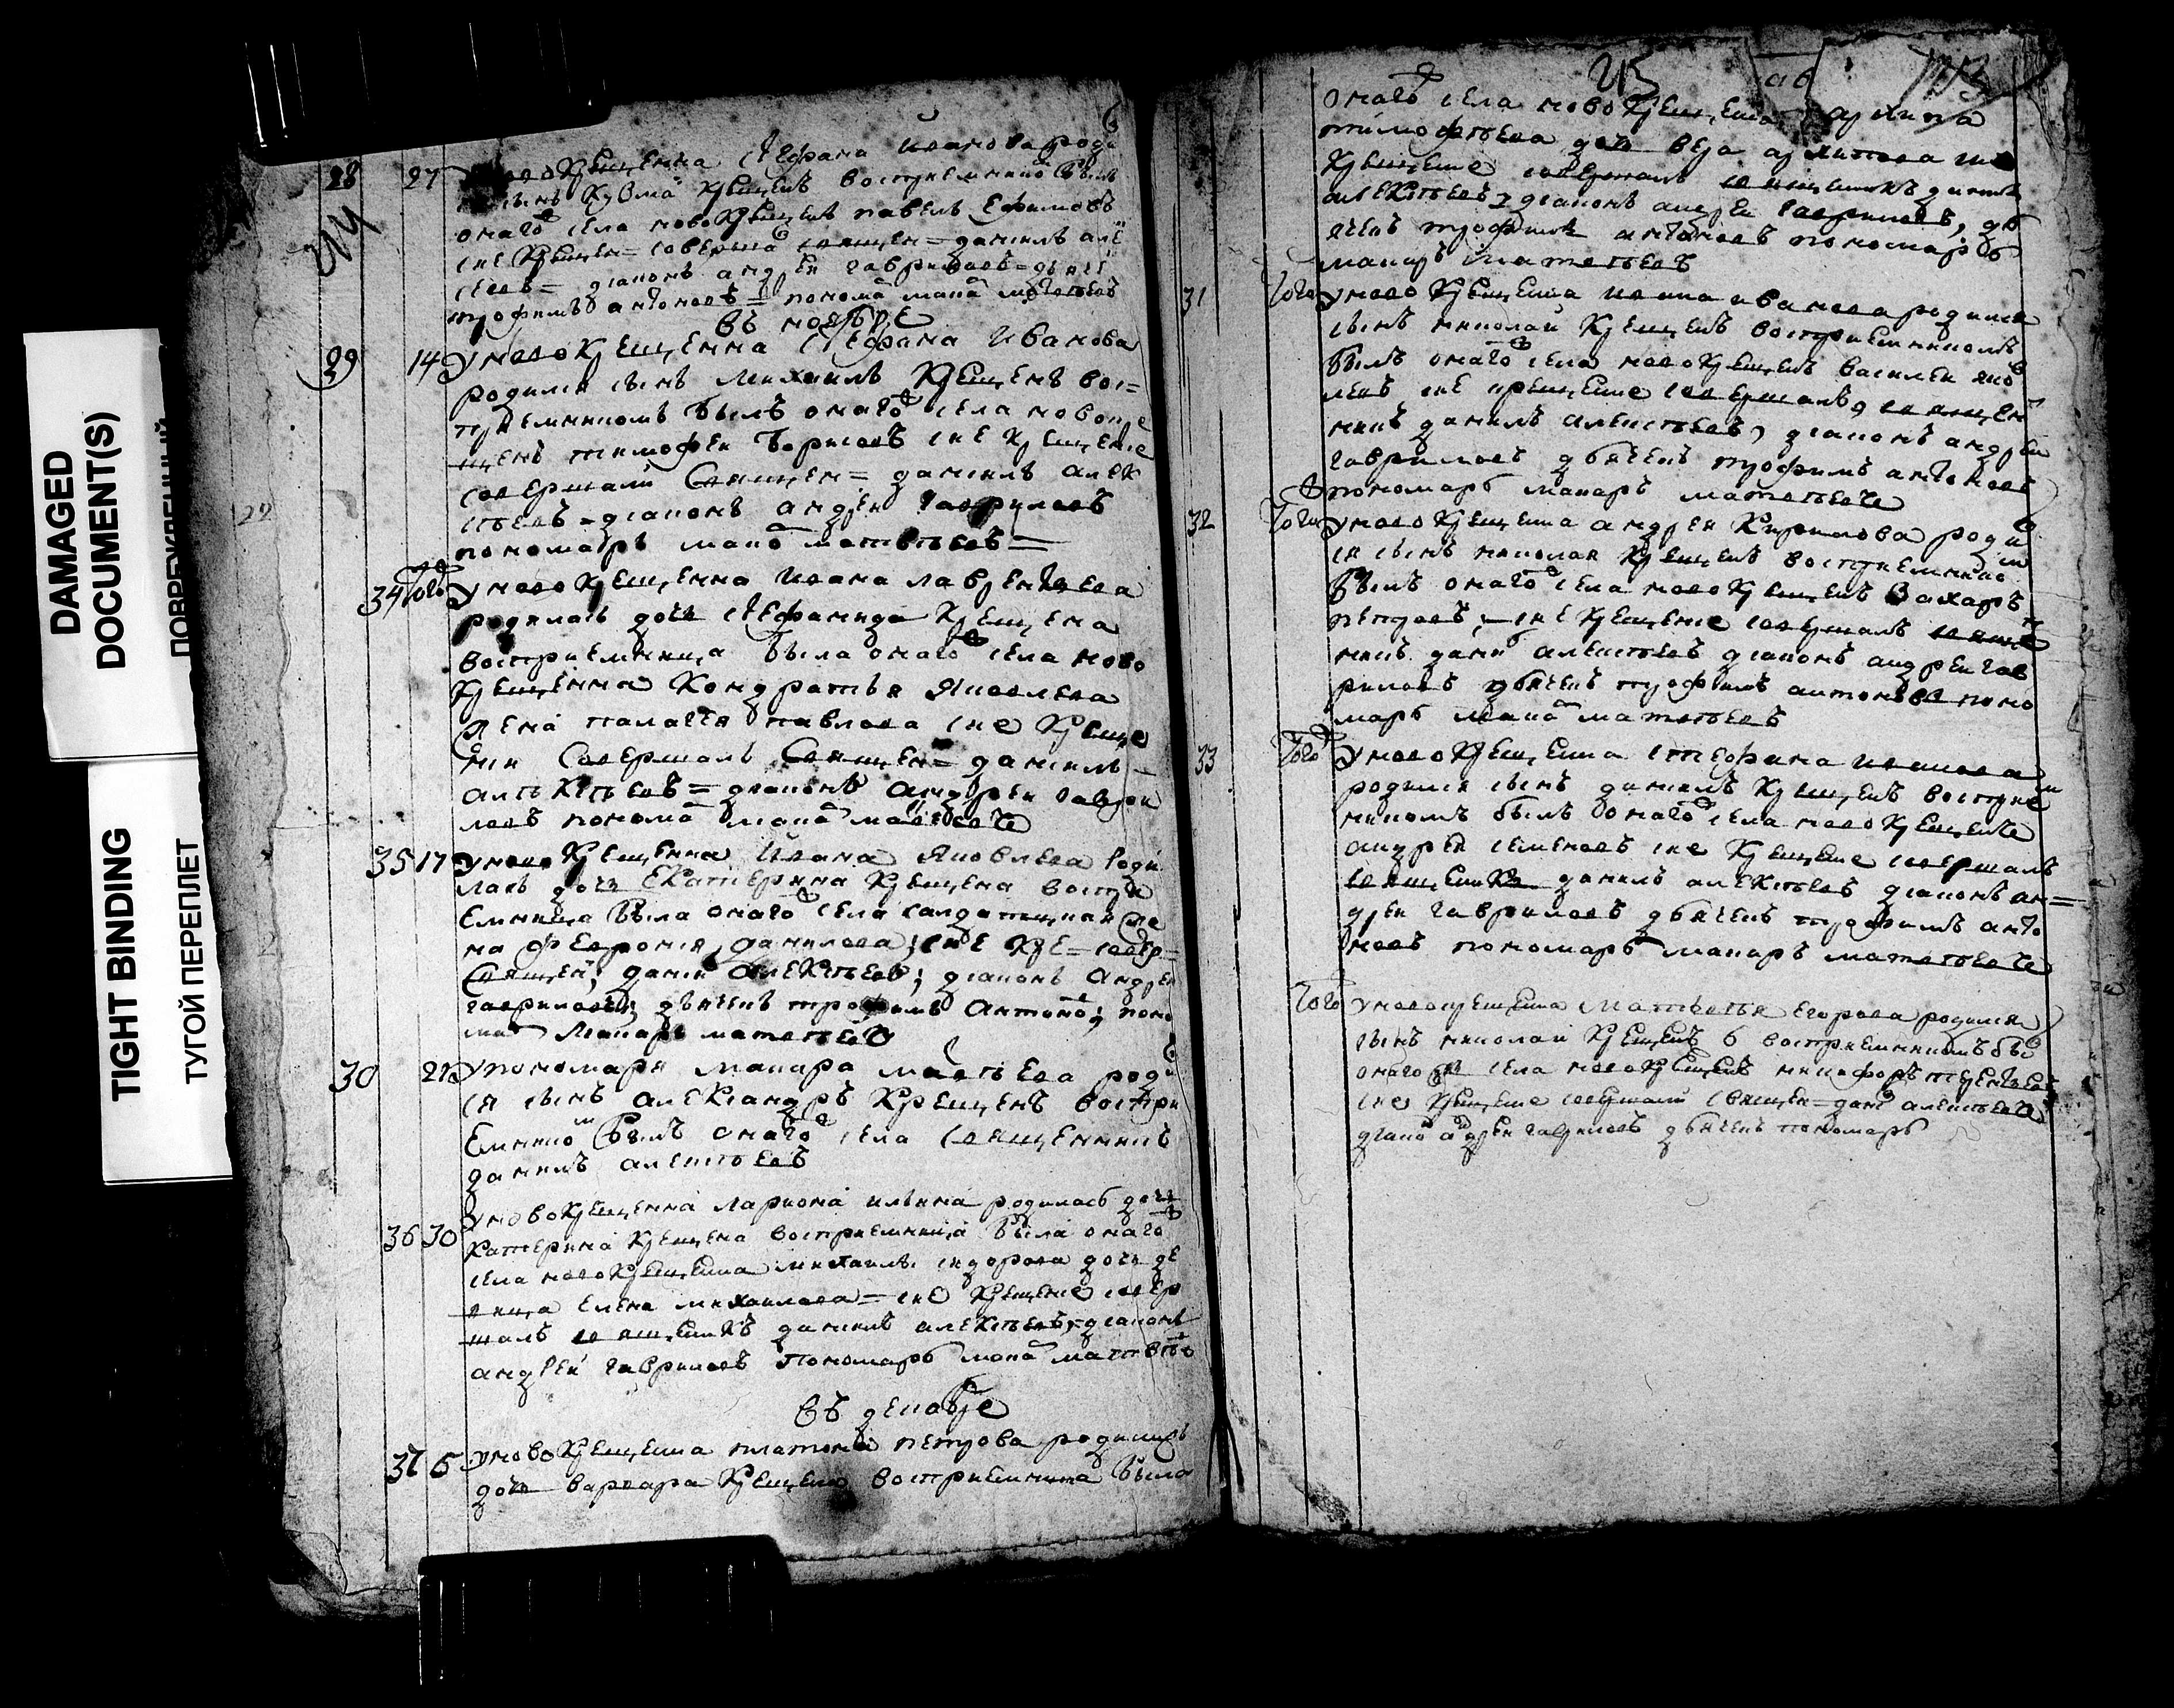 DAMAGED
DOCUMENT(S)
TIGHT BINDING
ТУГОЙ ПЕРЕПЛЕТ
28 27 новокрещенна стефана иванова роди
сынъ кузма крещенъ восприемнико былъ
онаго села новокрещенъ павелъ ефимовъ
сие крещен= соверша священ= даниилъ але
сеевъ= дiаконъ андрей гавриловъ= дьяче
трофимъ антоновъ= понома мака матвеевъ
въ ноябре
29 14 у новокрещенна стефана иванова
родился сынъ михаилъ крещенъ вос=
приемникомъ былъ онаго села новокре
щенъ тимофей борисовъ сие крещение
совершали священ= даниилъ алек
сеевъ= дiаконъ андрей гавриловъ
пономаръ мака матвеевъ=
34 того у новокрещенна ивана лаврентьева
родилась дочь стефанида крещена
восприемница была онаго села ново
крещенна кондратья яковлева
жена палагея павлова сие креще
нии совершалъ священ= даниилъ
алексеевъ= дiаконъ андрей гаври
ловъ понома мака матвеевъ
35 17 у новокрещенна ивана яковлева роди
лась дочь екатерина крещена воспри
емница была онаго села салдатская же
на феврония данилова; сие кре= совер=
священ; данил алексеевъ; дiаконъ андрей
гавриловъ; дьячекъ трофимъ антоно; поно
мар макаръ матвеевъ
30 21 у пономаря макара матвеева роди
ся сынъ александръ крещенъ воспри
емнико былъ онаго села священникъ
данилъ алексеевъ
36 30 у новокрещенна лариона ильина родилась дочь
катерина крещена восприемница была онаго
села новокрещенна михаила сидорова дочь де
вица елена михаилова= сие крещение совер
шалъ священникъ даниилъ алексеевъ, дiаконъ
андрей гавриловъ пономаръ мака матвеев
въ декабре
37 5 у новокрещенна платона петрова родилась
дочь варвара крещена восприемница была
215
онаго села новокрещенна архипа
тимофеева дочь вера архипова сие
крещение совершалъ священникъ данилъ
алексеевъ дiаконъ андрей гавриловъ, дья
чекъ трофимъ антоновъ пономаръ
макаръ матвеевъ
31 того у новокрещенна ивана иванова родился
сынъ николай крещенъ восприемникомъ
былъ онаго села новокрещенъ василей яко
левъ сие крещение совершалъ священ
никъ данилъ алексеевъ, дiаконъ андрей
гавриловъ дьячекъ трофимъ антоновъ
пономаръ макаръ матвеевъ
32 того у новокрещенна андрея кирилова роди
ся сынъ николай крещенъ восприемнико
былъ онаго села новокрещенъ захаръ
петровъ, сие крещение совершалъ священ
никъ дани алексеевъ дiаконъ андрей гав
риловъ дьячекъ трофимъ антоновъ поно
маръ мака матвеевъ
33 того у новокрещенна стефана иванова
родился сынъ данилъ крещенъ восприе
никомъ былъ онаго села новокрещенъ
андрей семеновъ сие крещение совершалъ
священникъ данилъ алексеевъ дiаконъ ан=
дрей гавриловъ дьячекъ трофимъ анто
новъ пономаръ макаръ матвеевъ
того у новокрещенна матвея егорова родился
сынъ николай крещенъ восприемникомъ бы
онаго села новокрещенъ никифоръ
сие крещение совершали священ= дани алексеевъ
дiако андрей гавриловъ дьячекъ пономаръ